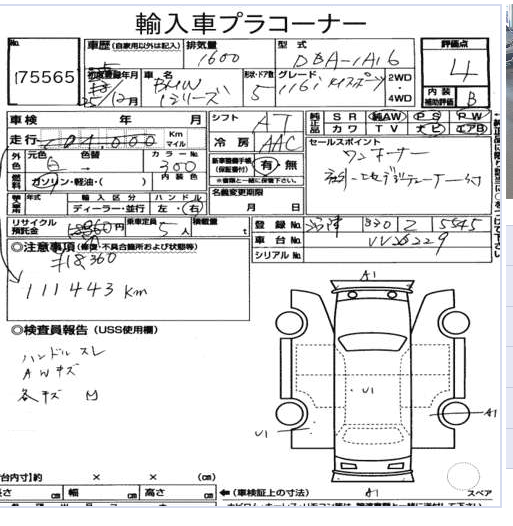 輸入車プラコーナー
No.
175565
車歴 (自家用以外は記入)
排気量
1600
型式
DBA-1A16
評価点
4
初度登録年月
25/12月
車名
BMW
1シリーズ
形状・ドア数
5
グレード
116i Mスポーツ
2WD
・
4WD
内装
補助評価
B
車検 年 月
シフト
AT
純正品
SR 純AW PS PW
カワ TV ナビ エアB
走行
101.000
Km
マイル
冷房
AAC
セールスポイント
ワンオーナー
外色
元色 色替
カラーNo.
白 →
300
新車整備手帳
(保証書付)
有・無
燃料
ガソリン・軽油・( )
内装色
名義変更期限
月 日
年式 輸入区分 ハンドル
ディーラー・並行 左・右
リサイクル
預託金
円
乗車定員
5人
積載量
t
登録No.
沼津 330 Z 5545
車台No.
VV26229
シリアルNo.
◎注意事項 (修復・不具合箇所および状態等)
#18360
111443 Km
◎検査員報告 (USS使用欄)
ハンドルスレ
AWキズ
各キズ M
A1
U1
A1
U1
A1
台内寸】約 × × (cm)
長さ cm 幅 cm 高さ cm
←(車検証上の寸法)
スペア